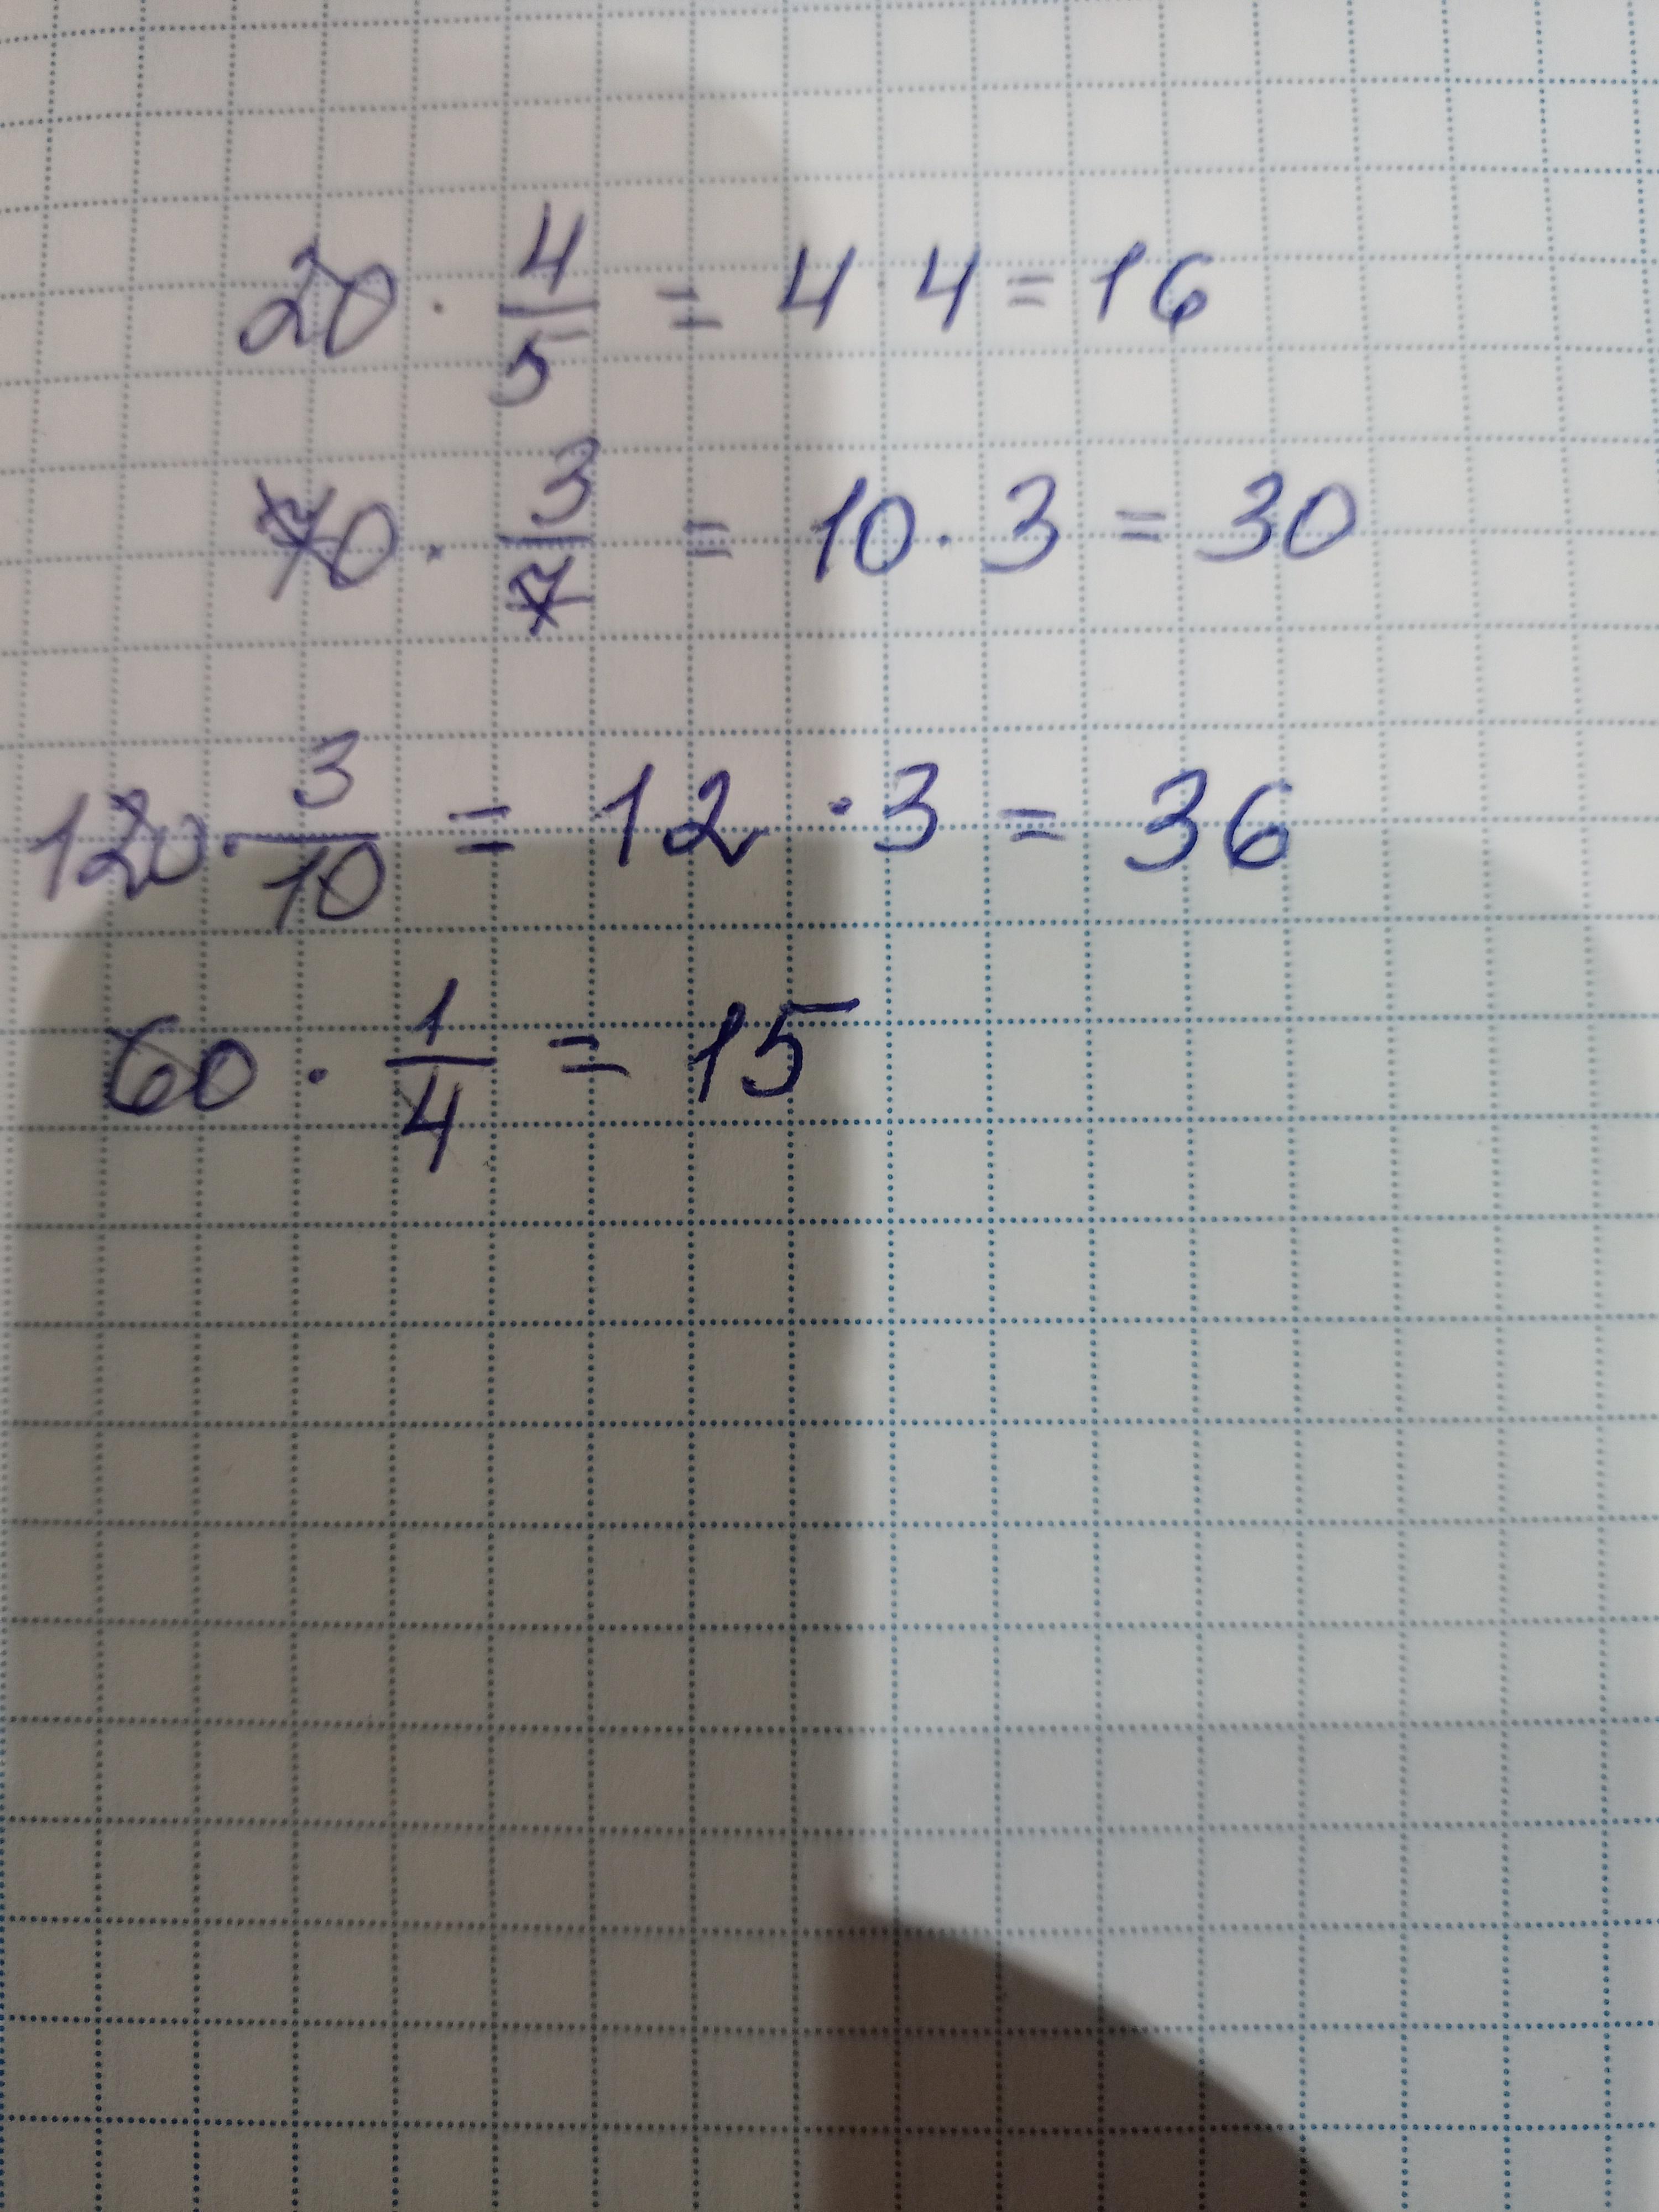 20 · 4/5 = 4 4 = 16
70 · 3/7 = 10 · 3 = 30
120 · 3/10 = 12 · 3 = 36
60 · 1/4 = 15